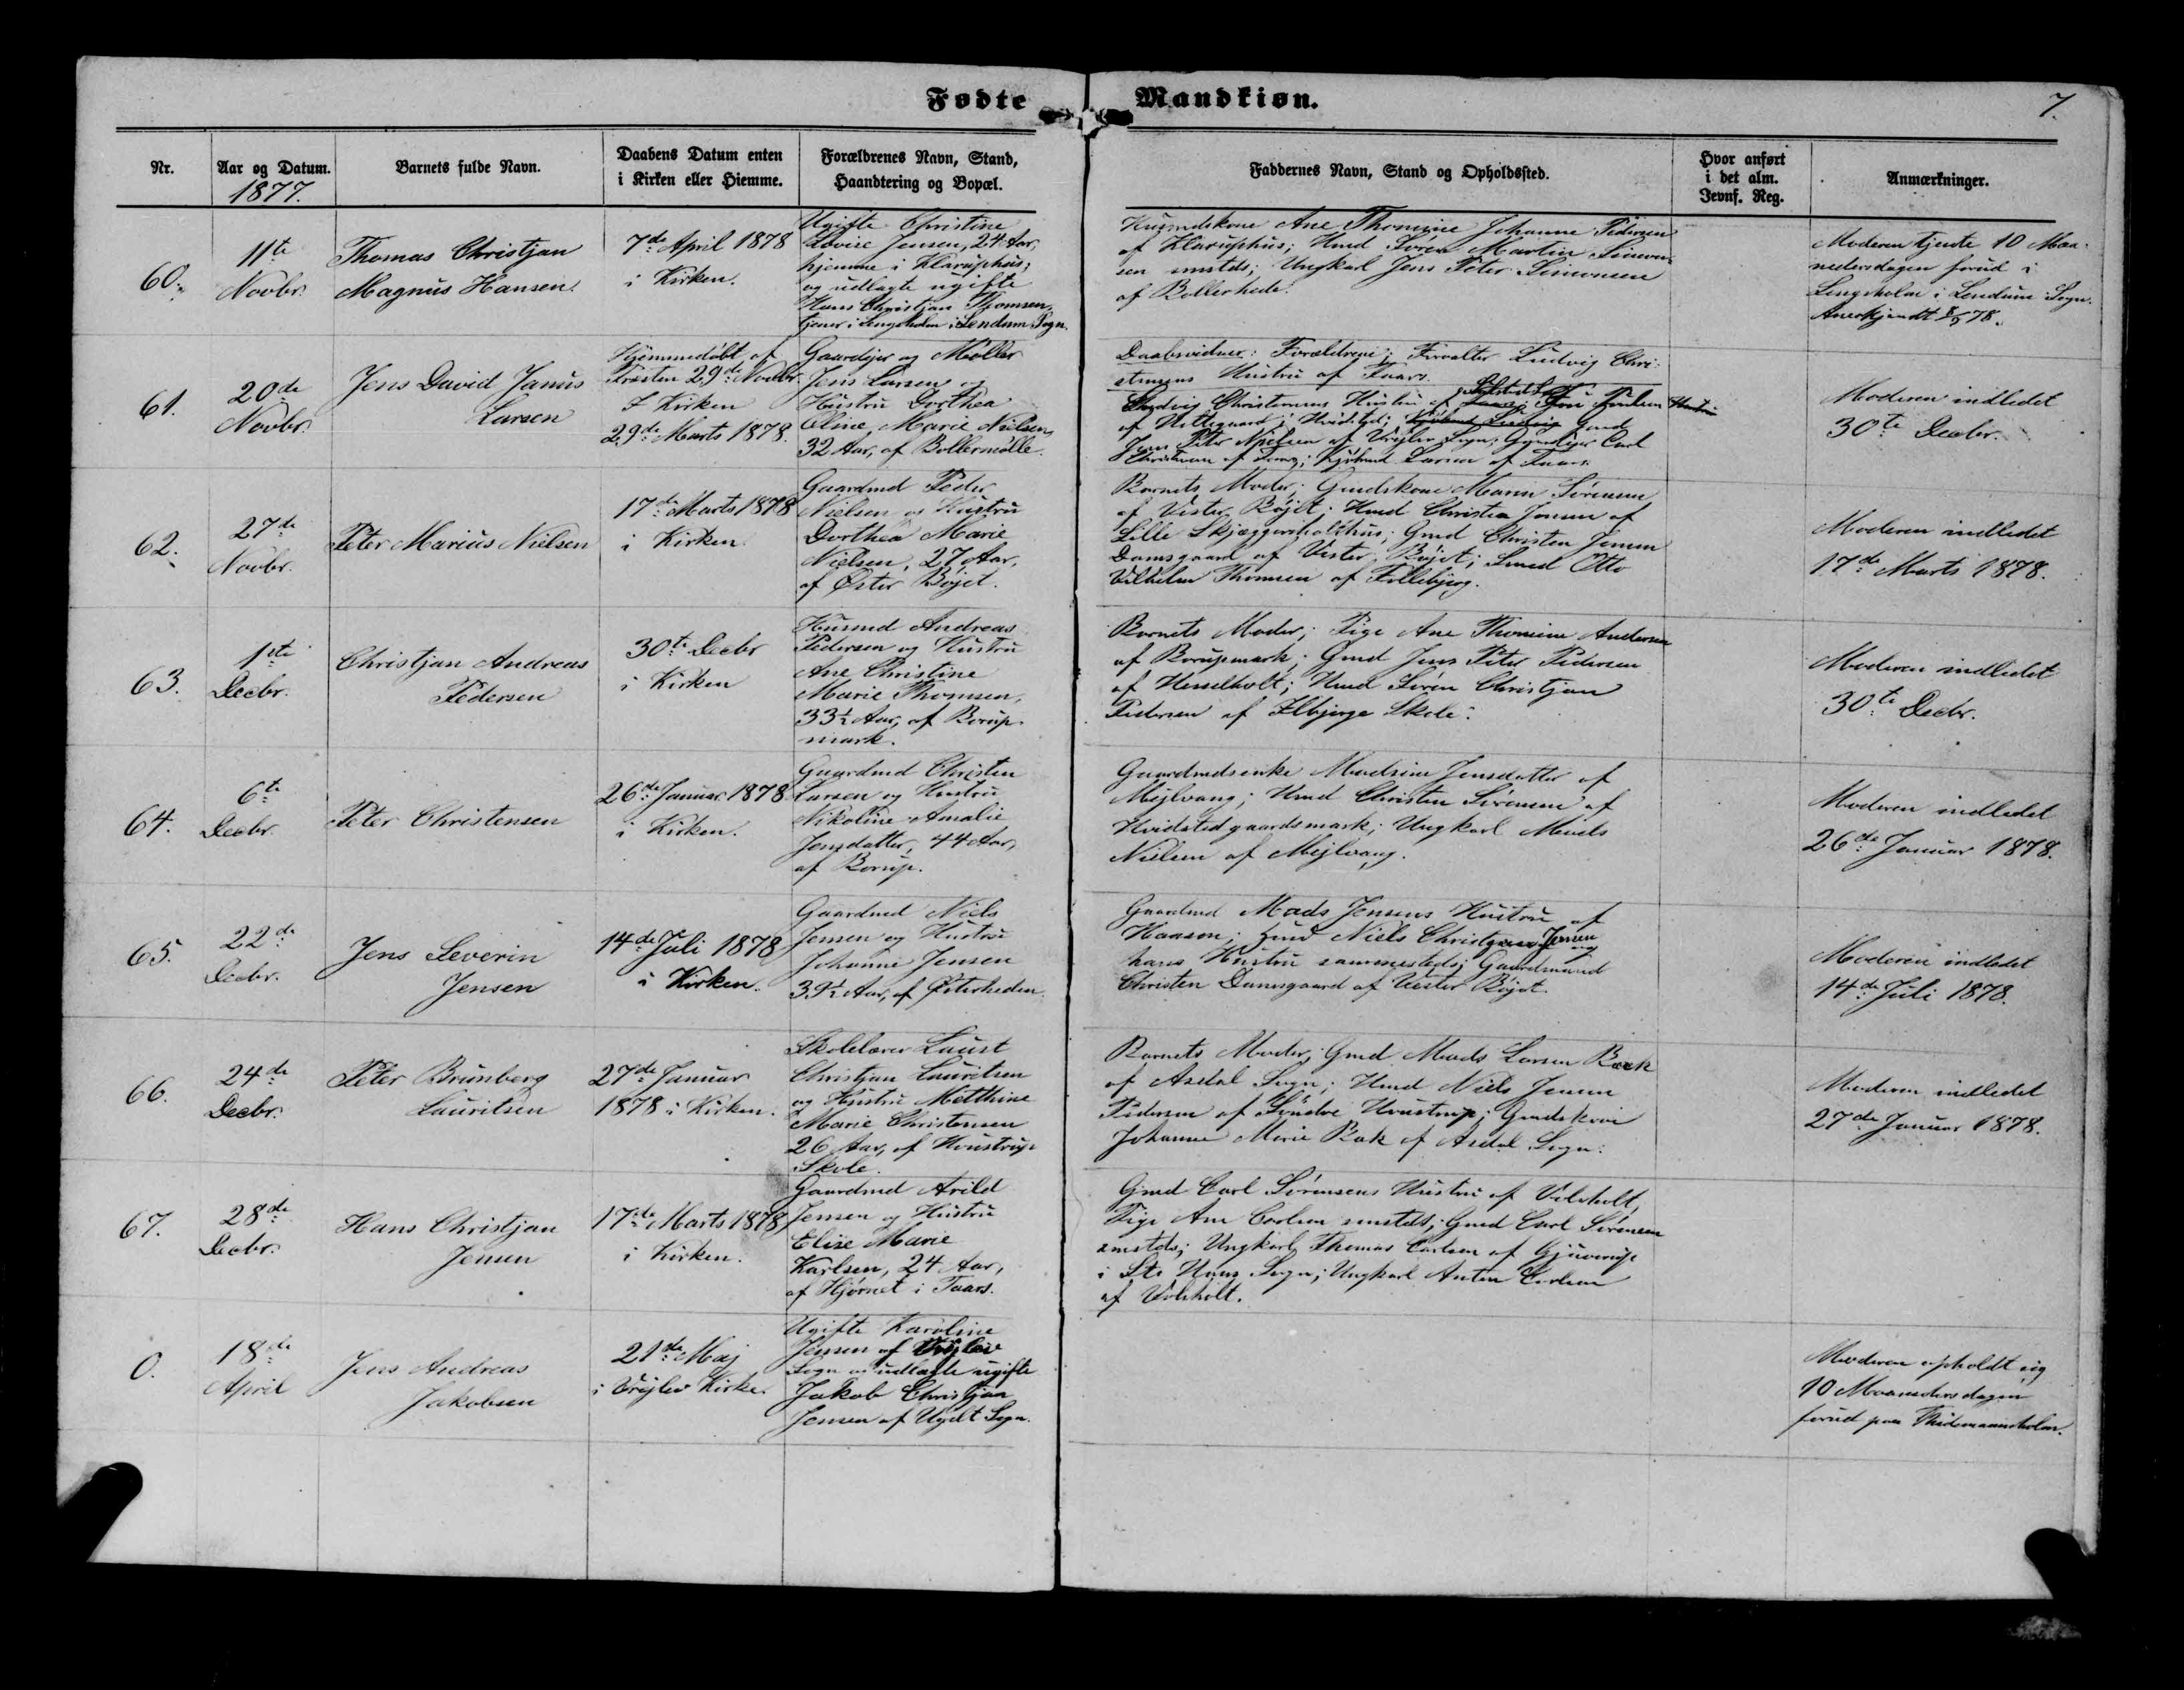 Fødte Mandkiøn.
7.
Nr.
Aar og Datum.
1877.
Barnets fulde Navn.
Daabens Datum enten
i Kirken eller Hiemme.
Forældrenes Navn, Stand,
Haandtering og Bopæl.
Faddernes Navn, Stand og Opholdssted.
Hvor anført
i det alm.
Jevnf. Reg.
Anmærkninger.
60.
11te
Novbr.
Thomas Christjan
Magnus Hansen
7de April 1878
i Kirken.
Ugifte Christine
Lovise Jensen, 24 Aar,
hjemme i Klaruphus;
og udlagte ugifte
Hans Christjan Thomsen,
tjener i Lengsholm i Lendum Sogn.
Husmdskone Ane Thomine Johanne Pedersen
af Klaruphus; Hmd Søren Martin Simon-
sen smstds; Ungkarl Jens Peter Simonsen
af Bollerhede.
Moderen tjente 10 Maa-
nedersdagen forud i
Lengsholm i Lendum Sogn.
Anerkjendt 78.
61.
20de
Novbr.
Jens David Janus
Larsen
Hjemmedøbt af
Præsten 29de Novbr.
I Kirken
29de Marts 1878.
Gaardejer og Møller
Jens Larsen og
Hustru Dorthea
Oline Marie Nielsen,
32 Aar, af Bollermølle.
Daabsvidner: Forældrene; Forvalter Ludvig Chri-
stensens Hustru af Taars.
Ludvig Christensens Hustru af
af Hvidsted; Gmd
Jens Peter Nielsen af Vrejlev Sogn; Carl
Christensen af; Larsen af Taars.
Moderen indledet
30te Decbr.
62.
27de
Novbr.
Peter Marius Nielsen
17de Marts 1878
i Kirken.
Gaardmd Peder
Nielsen og Hustru
Dorthea Marie
Nielsen, 27 Aar,
af Øster Bøjet.
Barnets Moder; Gmdskone Maren Sørensen
af Vester Bøjet; Hmd Christen Jensen af
Lille Skjæggersholthus; Gmd Christen Jensen
Damsgaard af Vester Bøjet; Smed Otto
Vilhelm Thomsen af Follebjerg.
Moderen indledet
17de Marts 1878.
63.
1ste
Decbr.
Christjan Andreas
Pedersen
30te Decbr
i Kirken
Husmd Andreas
Pedersen og Hustru
Ane Christine
Marie Thomsen,
33½ Aar, af Borup-
mark.
Barnets Moder; Pige Ane Thomine Andersen
af Borupmark; Gmd Jens Peter Pedersen
af Hesselholt; Hmd Søren Christjan
Pedersen af Ilbjerge Skole.
Moderen indledet
30te Decbr.
64.
6te
Decbr.
Peter Christensen
26de Januar 1878
i Kirken.
Gaardmd Christen
Larsen og Hustru
Nikoline Amalie
Jensdatter, 44 Aar,
af Borup.
Gaardmdsenke Madsine Jensdatter af
Mejlvang; Hmd Christen Sørensen af
Hvidstedgaardsmark; Ungkarl Mads
Nielsen af Mejlvang.
Moderen indledet
26de Januar 1878.
65.
22de
Decbr.
Jens Severin
Jensen
14de Juli 1878
i Kirken.
Gaardmd Niels
Jensen og Hustru
Johanne Jensen
39½ Aar, af Østerheden.
Gaardmd Mads Jensens Hustru af
Haasen; Hmd Niels Christjan Jensen og
hans Hustru sammesteds; Gaardmand
Christen Damsgaard af Vester Bøjet.
Moderen indledet
14de Juli 1878.
66.
24de
Decbr.
Peter Brunberg
Lauritsen
27de Januar
1878 i Kirken.
Skolelærer Laust
Christjan Lauritsen
og Hustru Metthine
Marie Christensen
26 Aar, af Hvustrup
Skole.
Barnets Moder; Gmd Mads Larsen Bak
af Asdal Sogn; Hmd Niels Jensen
Pedersen af Søndre Hvustrup; Gmdskone
Johanne Marie Bak af Asdal Sogn.
Moderen indledet
27de Januar 1878.
67.
28de
Decbr.
Hans Christjan
Jensen
17de Marts 1878
i Kirken.
Gaardmd Arild
Jensen og Hustru
Elise Marie
Karlsen, 24 Aar,
af Hjørnet i Taars.
Gmd Carl Sørensens Hustru af Voleholt;
Pige Ane Carlsen smstds; Gmd Carl Sørensen
smstds; Ungkarl Thomas Carlsen af
i Sts Hans Sogn; Ungkarl Anton Carlsen
af Voleholt.
0.
18de
April
Jens Andreas
Jakobsen
21de Maj
i Vrejlev Kirke.
Ugifte Karoline
Jensen af Vrejlev
Sogn og udlagte ugifte
Jakob Christjan
Jensen af Ugilt Sogn.
Moderen opholdt sig
10 Maanedersdagen
forud paa Thidemannsholm.